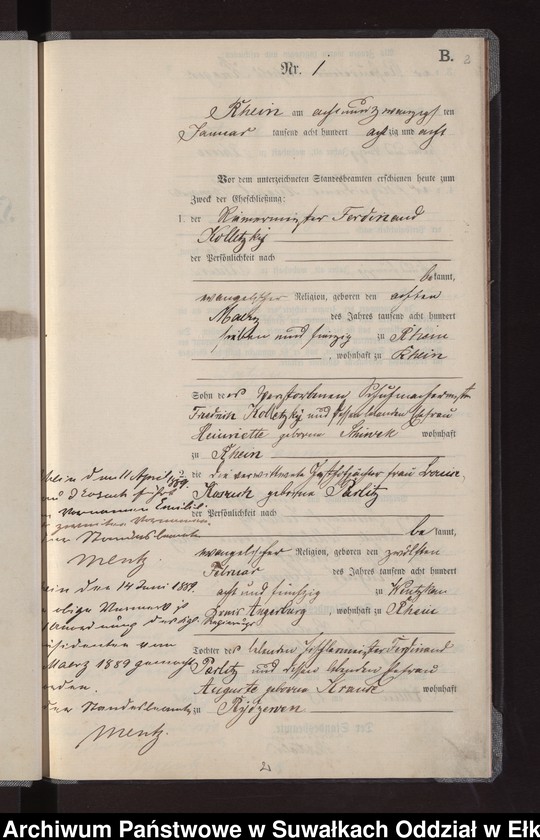 B.
2
Nr. 1
Rhein am achtundzwanzigsten
Januar tausend acht hundert achtzig und acht
Vor dem unterzeichneten Standesbeamten erschienen heute zum
Zweck der Eheschließung:
1. der Riemermeister Ferdinand
Kolletzky
der Persönlichkeit nach
bekannt,
evangelischer Religion, geboren den achten
Maerz des Jahres tausend acht hundert
sieben und fünfzig zu Rhein
, wohnhaft zu Rhein
Sohn des verstorbenen Schuhmachermeister
Friedrich Kolletzky und dessen lebenden Ehefrau
Heinriette geborene wohnhaft
zu Rhein
2. die verwittwete Frau
geborene Parlitz
der Persönlichkeit nach
bekannt,
evangelischer Religion, geboren den zwölften
Februar des Jahres tausend acht hundert
acht und fünfzig zu
Kreis Angerburg, wohnhaft zu Rhein
Tochter des lebenden Ferdinand
Parlitz und dessen lebenden Ehefrau
Auguste geborene Krause wohnhaft
zu Rydzewen
den 11 April 1889.
Vornamen
Standesbeamte
Mentz
den 14 Juni 1889.
Vermerk
Anordnung des Kgl.
Regierungs
Präsidenten vom
Maerz 1889 gemacht
worden.
Der Standesbeamte
Mentz.
2
Archiwum Państwowe w Suwałkach Oddział w Ełk